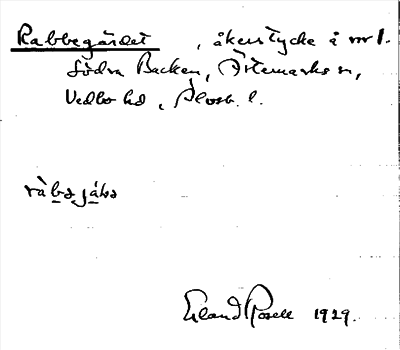 Rabbegärdet, åkerstycke å nr 1.
Södra Backen, Ärtemarks sn,
Vedbo hd, Älvsb. l.
Erland Rosell 1929.